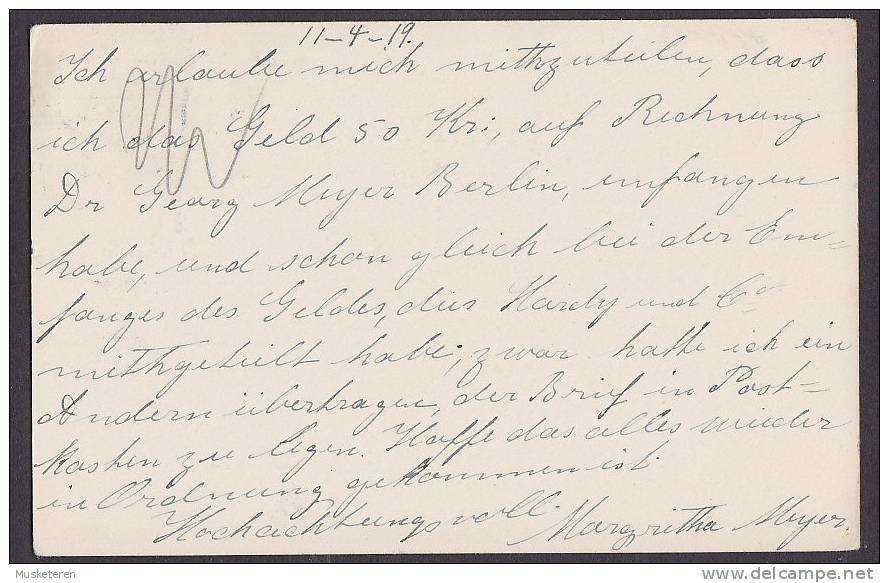 11-4-19.
Ich erlaube mich mithzuteilen, dass
ich das Geld 50 Kr:, auf Rechnung
Dr Georg Meyer Berlin, emfangen
habe, und schon gleich bei der Em=
fanges des Geldes, dies Hardy und Co
mithgeteilt habe; zwar hatte ich ein
Andern übertragen, der Brief in Post=
kasten zu legen. Hoffe das alles wieder
in Ordnung gekommen ist.
Hochachtungsvoll. Margretha Meyer.
Musketeren
delcampe.net